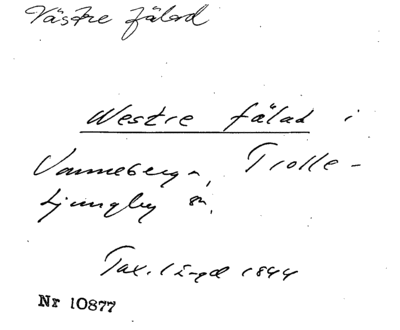 Västre fälad
Westre fälad i
Vanneberga, Trolle-
Ljungby sn.
Tax. längd 1844
Nr 10877